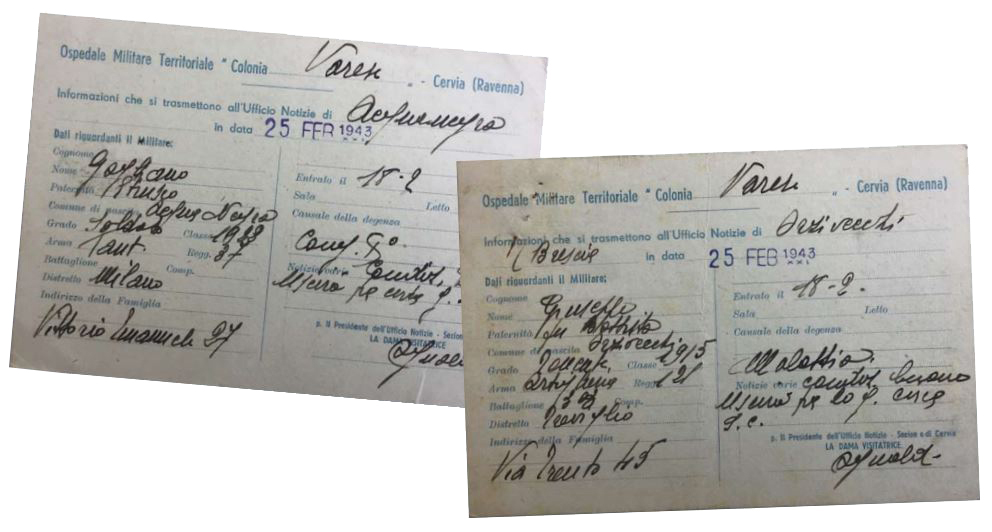 Ospedale Militare Territoriale "Colonia Varese " - Cervia (Ravenna)
Informazioni che si trasmettono all'Ufficio Notizie di Acquanegra
in data 25 FEB 1943 XXI.
Dati riguardanti il Militare:
Cognome
Nome
Paternità
Comune di nascita Acqua Negra
Grado Soldato Classe
Arma Fant. Regg. 37
Battaglione Comp.
Distretto Milano
Indirizzo della Famiglia
Vittorio Emanuele 27
Entrato il 18-2
Sala Letto
Causale della degenza
Cong. I°
Notizie varie Condiz.
p. Il Presidente dell'Ufficio Notizie - Sezion
LA DAMA VISITATRICE
Ospedale Militare Territoriale "Colonia Varese " - Cervia (Ravenna)
Informazioni che si trasmettono all'Ufficio Notizie di Orzivecchi
Brescia in data 25 FEB 1943 XXI.
Dati riguardanti il Militare:
Cognome
Nome
Paternità fu Battista
Comune di nascita Orzivecchi
Grado Classe 1915
Arma Artiglieria Regg. 121
Battaglione Comp.
Distretto Treviglio
Indirizzo della Famiglia
Via Trento 45
Entrato il 18-2.
Sala Letto
Causale della degenza
Malattia.
Notizie varie condiz. buone
p. Il Presidente dell'Ufficio Notizie - Sezione di Cervia
LA DAMA VISITATRICE.